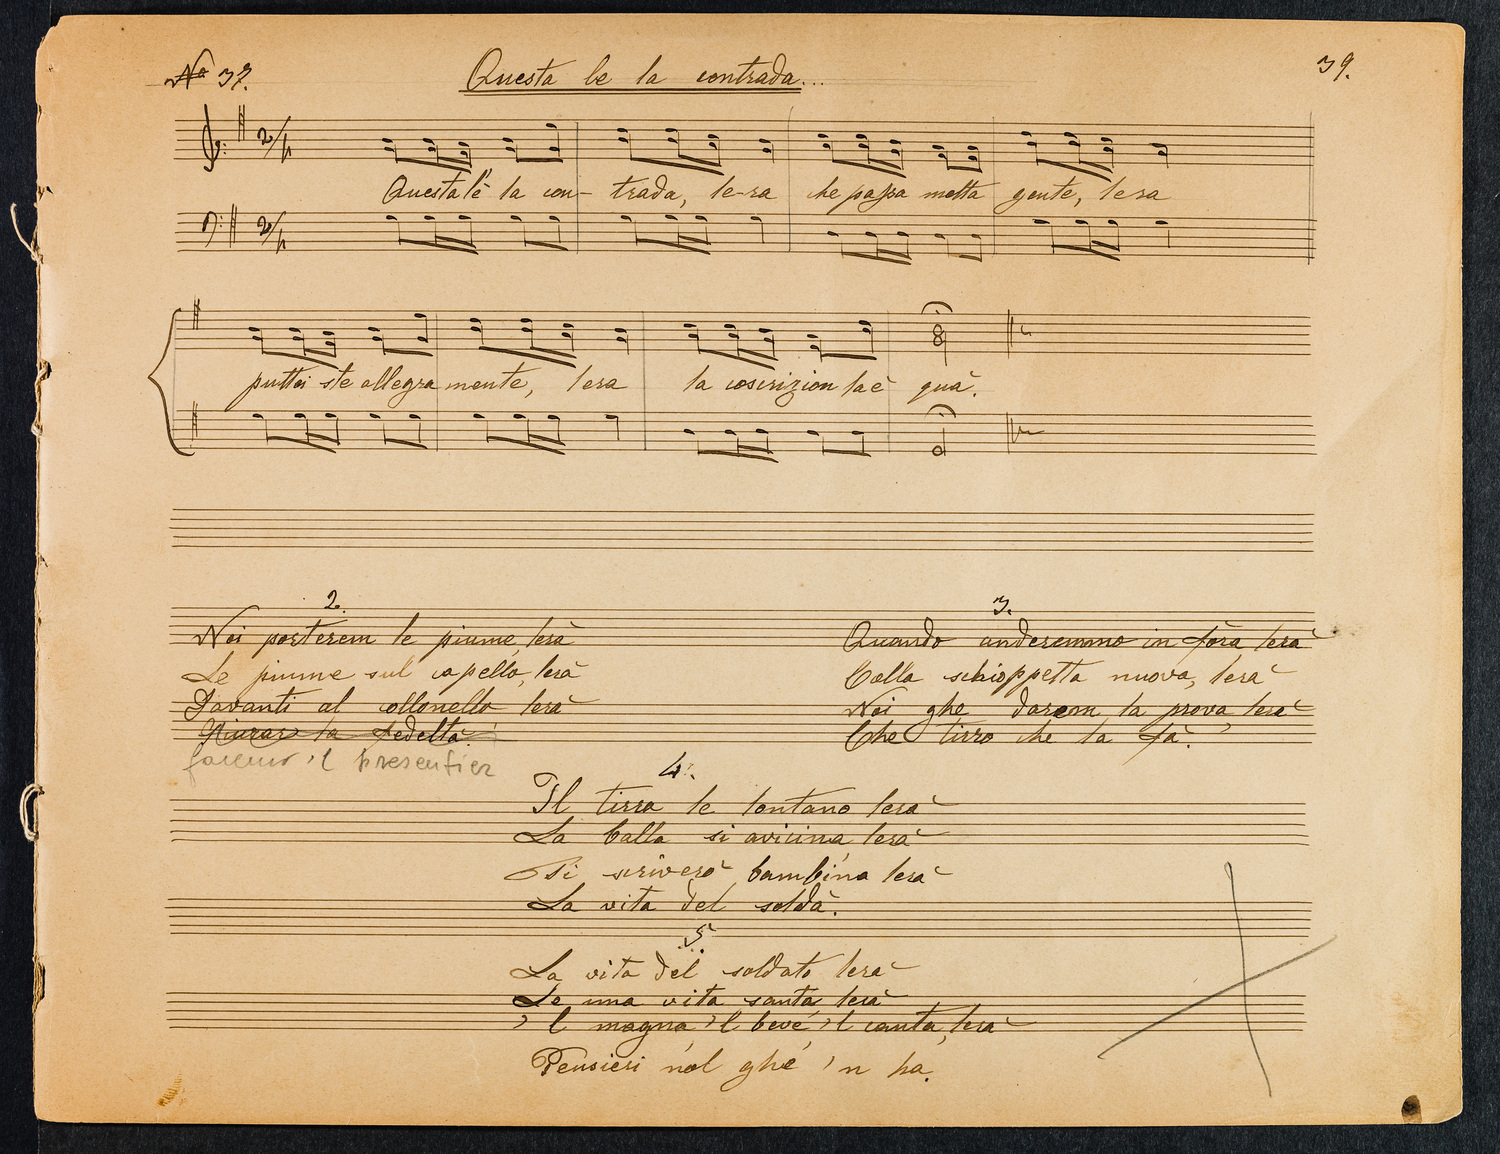 No 37.
Questa le la contrada...
39.
2/4
Questa l'è la con- trada, le-ra che passa molta gente, lera
2/4
puttei ste allegra mente, lera la coscrizion la è quà.
2.
Noi porterem le piume, lerà
Le piume sul capello, lerà
Davanti al collonello lerà
Giurar la fedeltà.
faremo 'l presentier
3.
Quando anderemmo in fora lerà
Colla schioppetta nuova, lerà
Noi ghe darem la prova, lerà
Che tirro che la fà.
4.
Il tirra le lontano lerà
La balla si avicina lerà
Ti scriverò bambina lerà
La vita del soldà.
5.
La vita del soldato lerà
Le una vita santa, lerà
'l magna 'l beve, 'l canta, lerà
Pensieri nol ghé 'n ha.